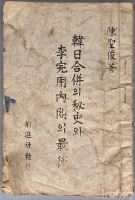 陳聖俊著
韓日合併의 秘史와
李完用內閣의 最後
前進社 發行